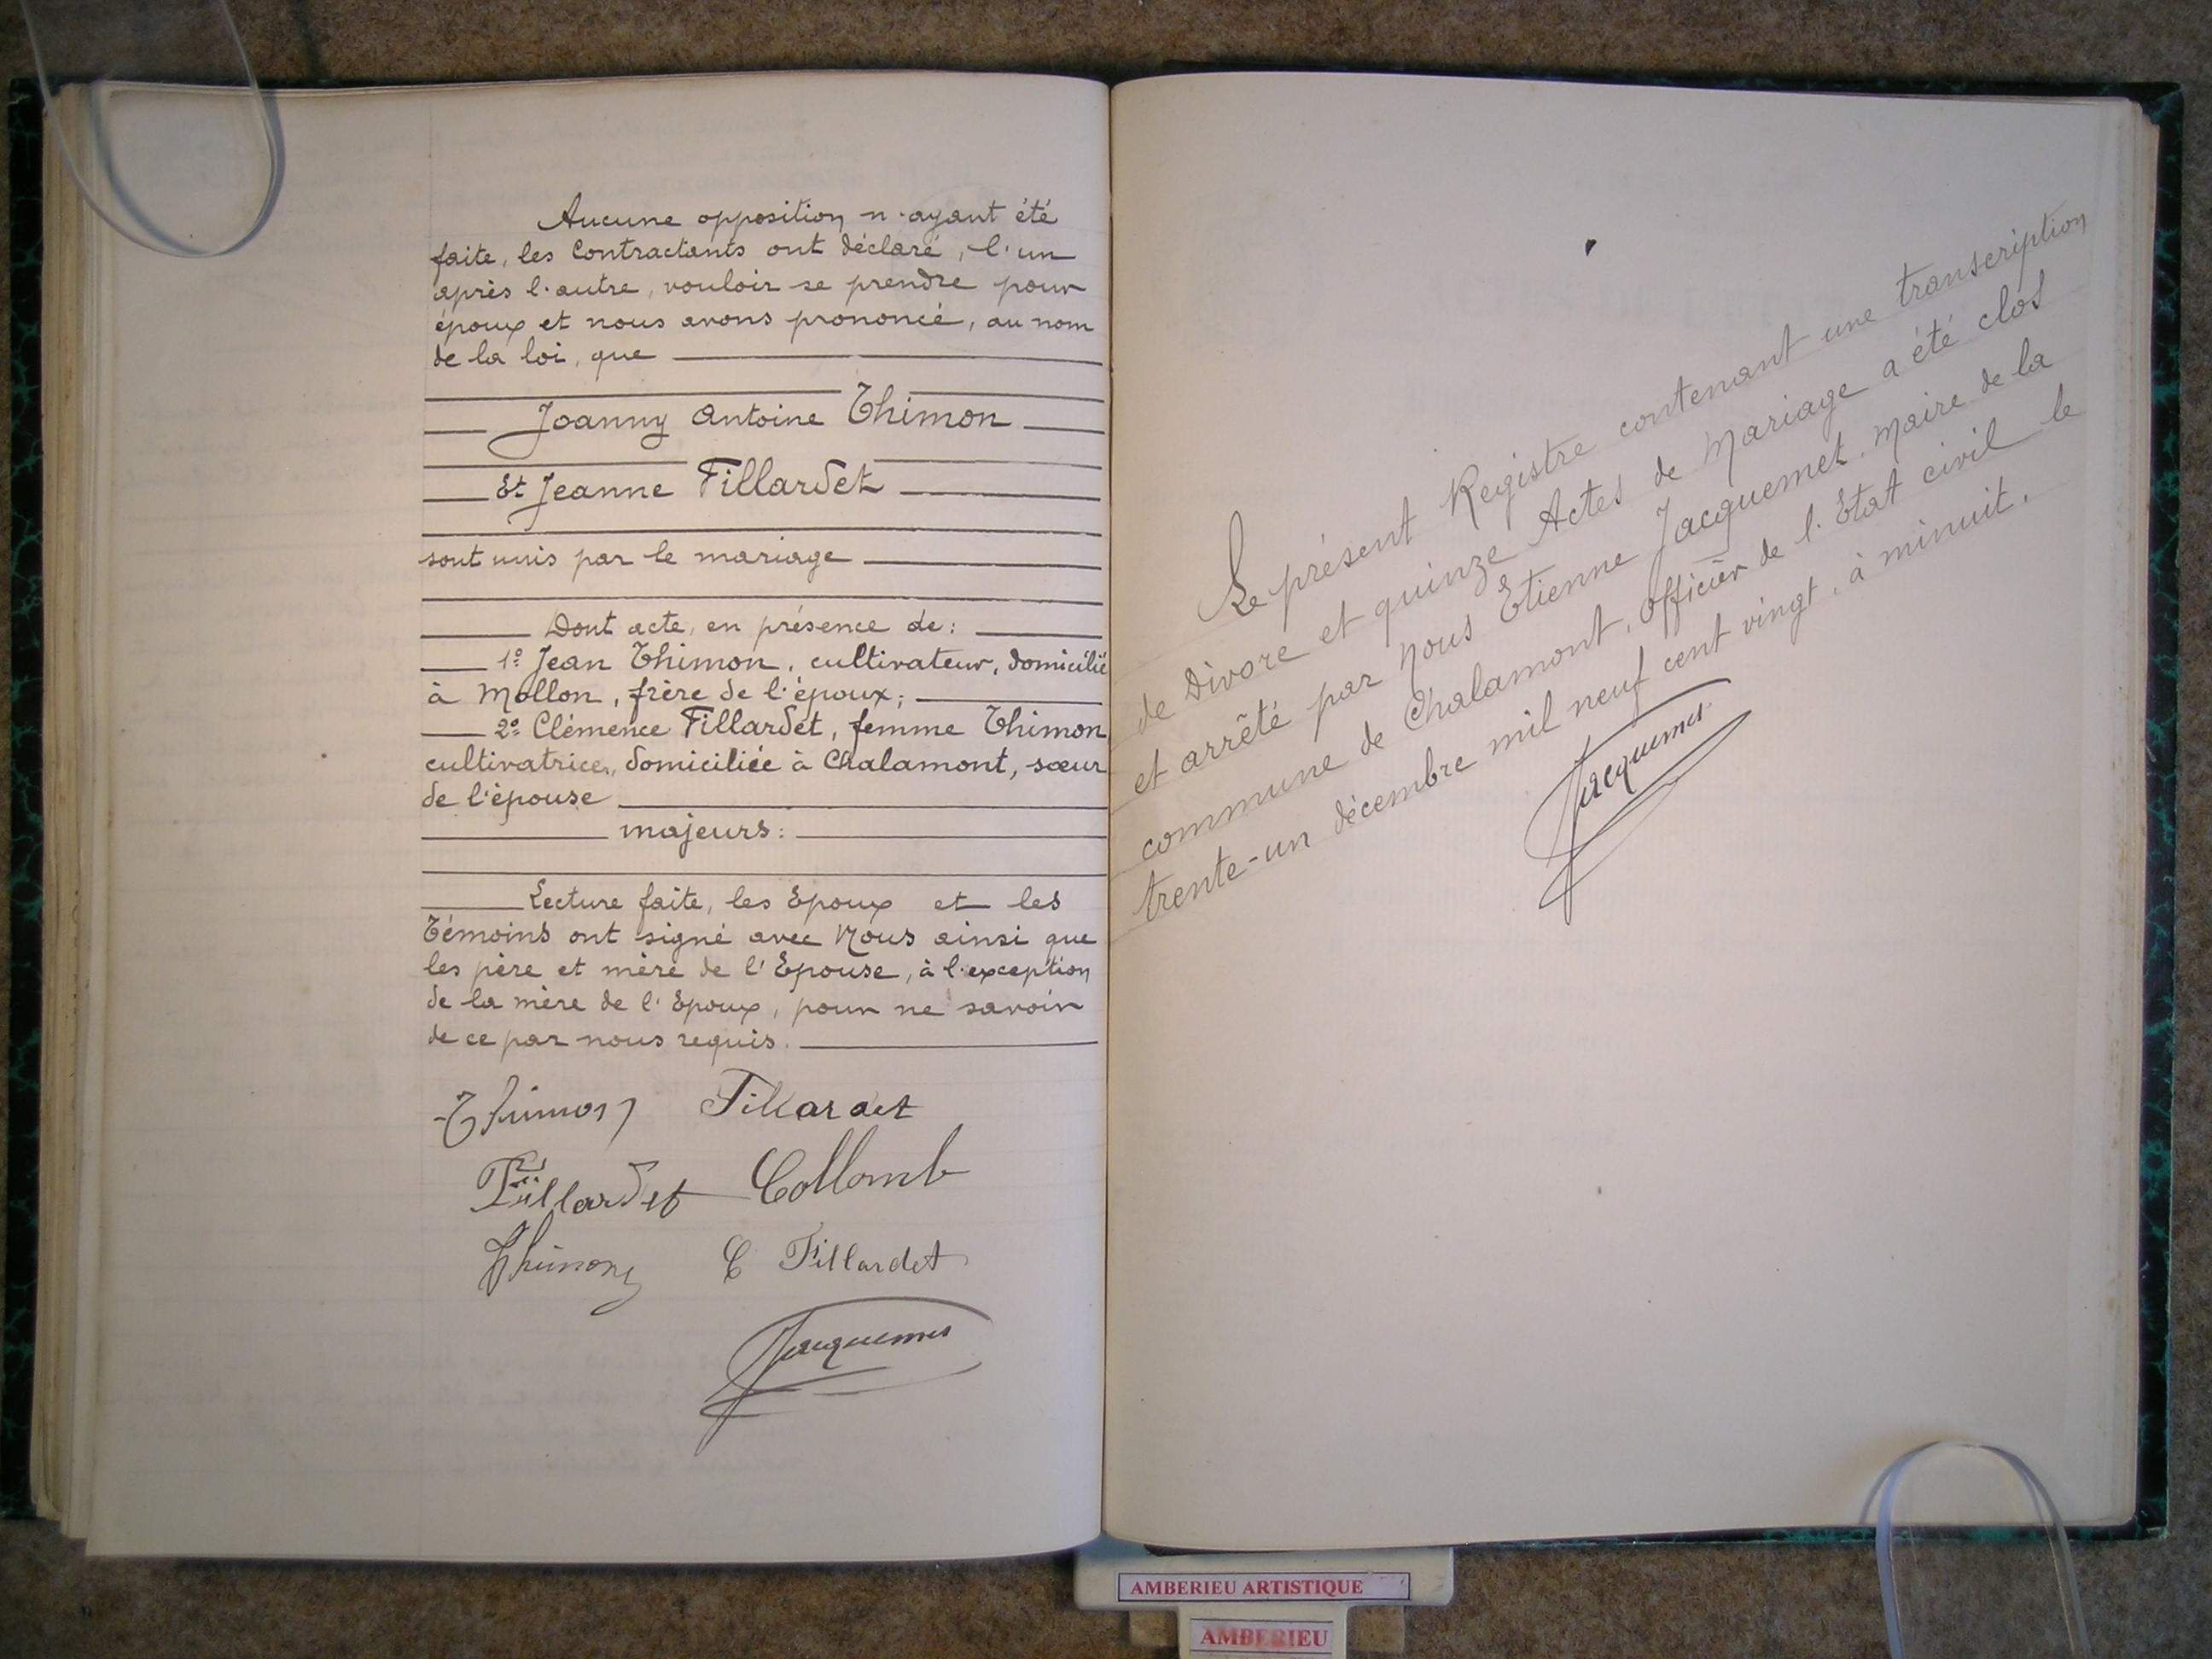 Aucune opposition n'ayant été
faite, les Contractants ont déclaré, l'un
après l'autre, vouloir se prendre pour
époux et nous avons prononcé, au nom
de la loi, que
Joanny Antoine Thimon
Et Jeanne Fillardet
sont unis par le mariage
Dont acte, en présence de:
1º Jean Thimon, cultivateur, domicilié
à Mollon, frère de l'époux;
2º Clémence Fillardet, femme Thimon
cultivatrice, domiciliée à Chalamont, sœur
de l'épouse
majeurs:
Lecture faite, les Epoux et les
Témoins ont signé avec Nous ainsi que
les père et mère de l'Epouse, à l'exception
de la mère de l'Epoux, pour ne savoir
de ce par nous requis.
Thimon Fillardet
Fillardet Collomb
Thimon C Fillardet
Jacquemet
Le présent Registre contenant une transcription
de Divore et quinze Actes de Mariage a été clos
et arrêté par Nous Etienne Jacquemet, Maire de la
commune de Chalamont, officier de l'Etat civil le
trente-un décembre mil neuf cent vingt, à minuit.
Jacquemet
AMBERIEU ARTISTIQUE
AMBERIEU